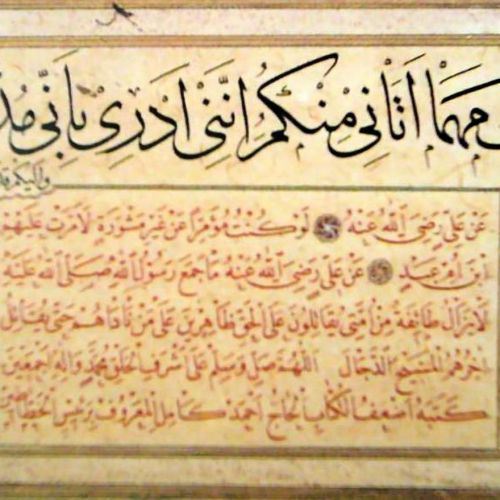 مهما اتاني منكم انني ادري باني
واليكم
عن علي رضي الله عنه لو كنت مؤمرا عن غير مشورة لامرت عليهم
ابن ام عبد عن علي رضي الله عنه ما جمع رسول الله صلى الله عليه
لا تزال طائفة من امتي يقاتلون على الحق ظاهرين على من ناداهم حتى يقاتل
اخرهم المسيح الدجال اللهم صل وسلم على اشرف الخلق محمد واله اجمعين
كتبه اضعف الكتاب الحاج احمد كامل المعروف برئيس الخطاطين